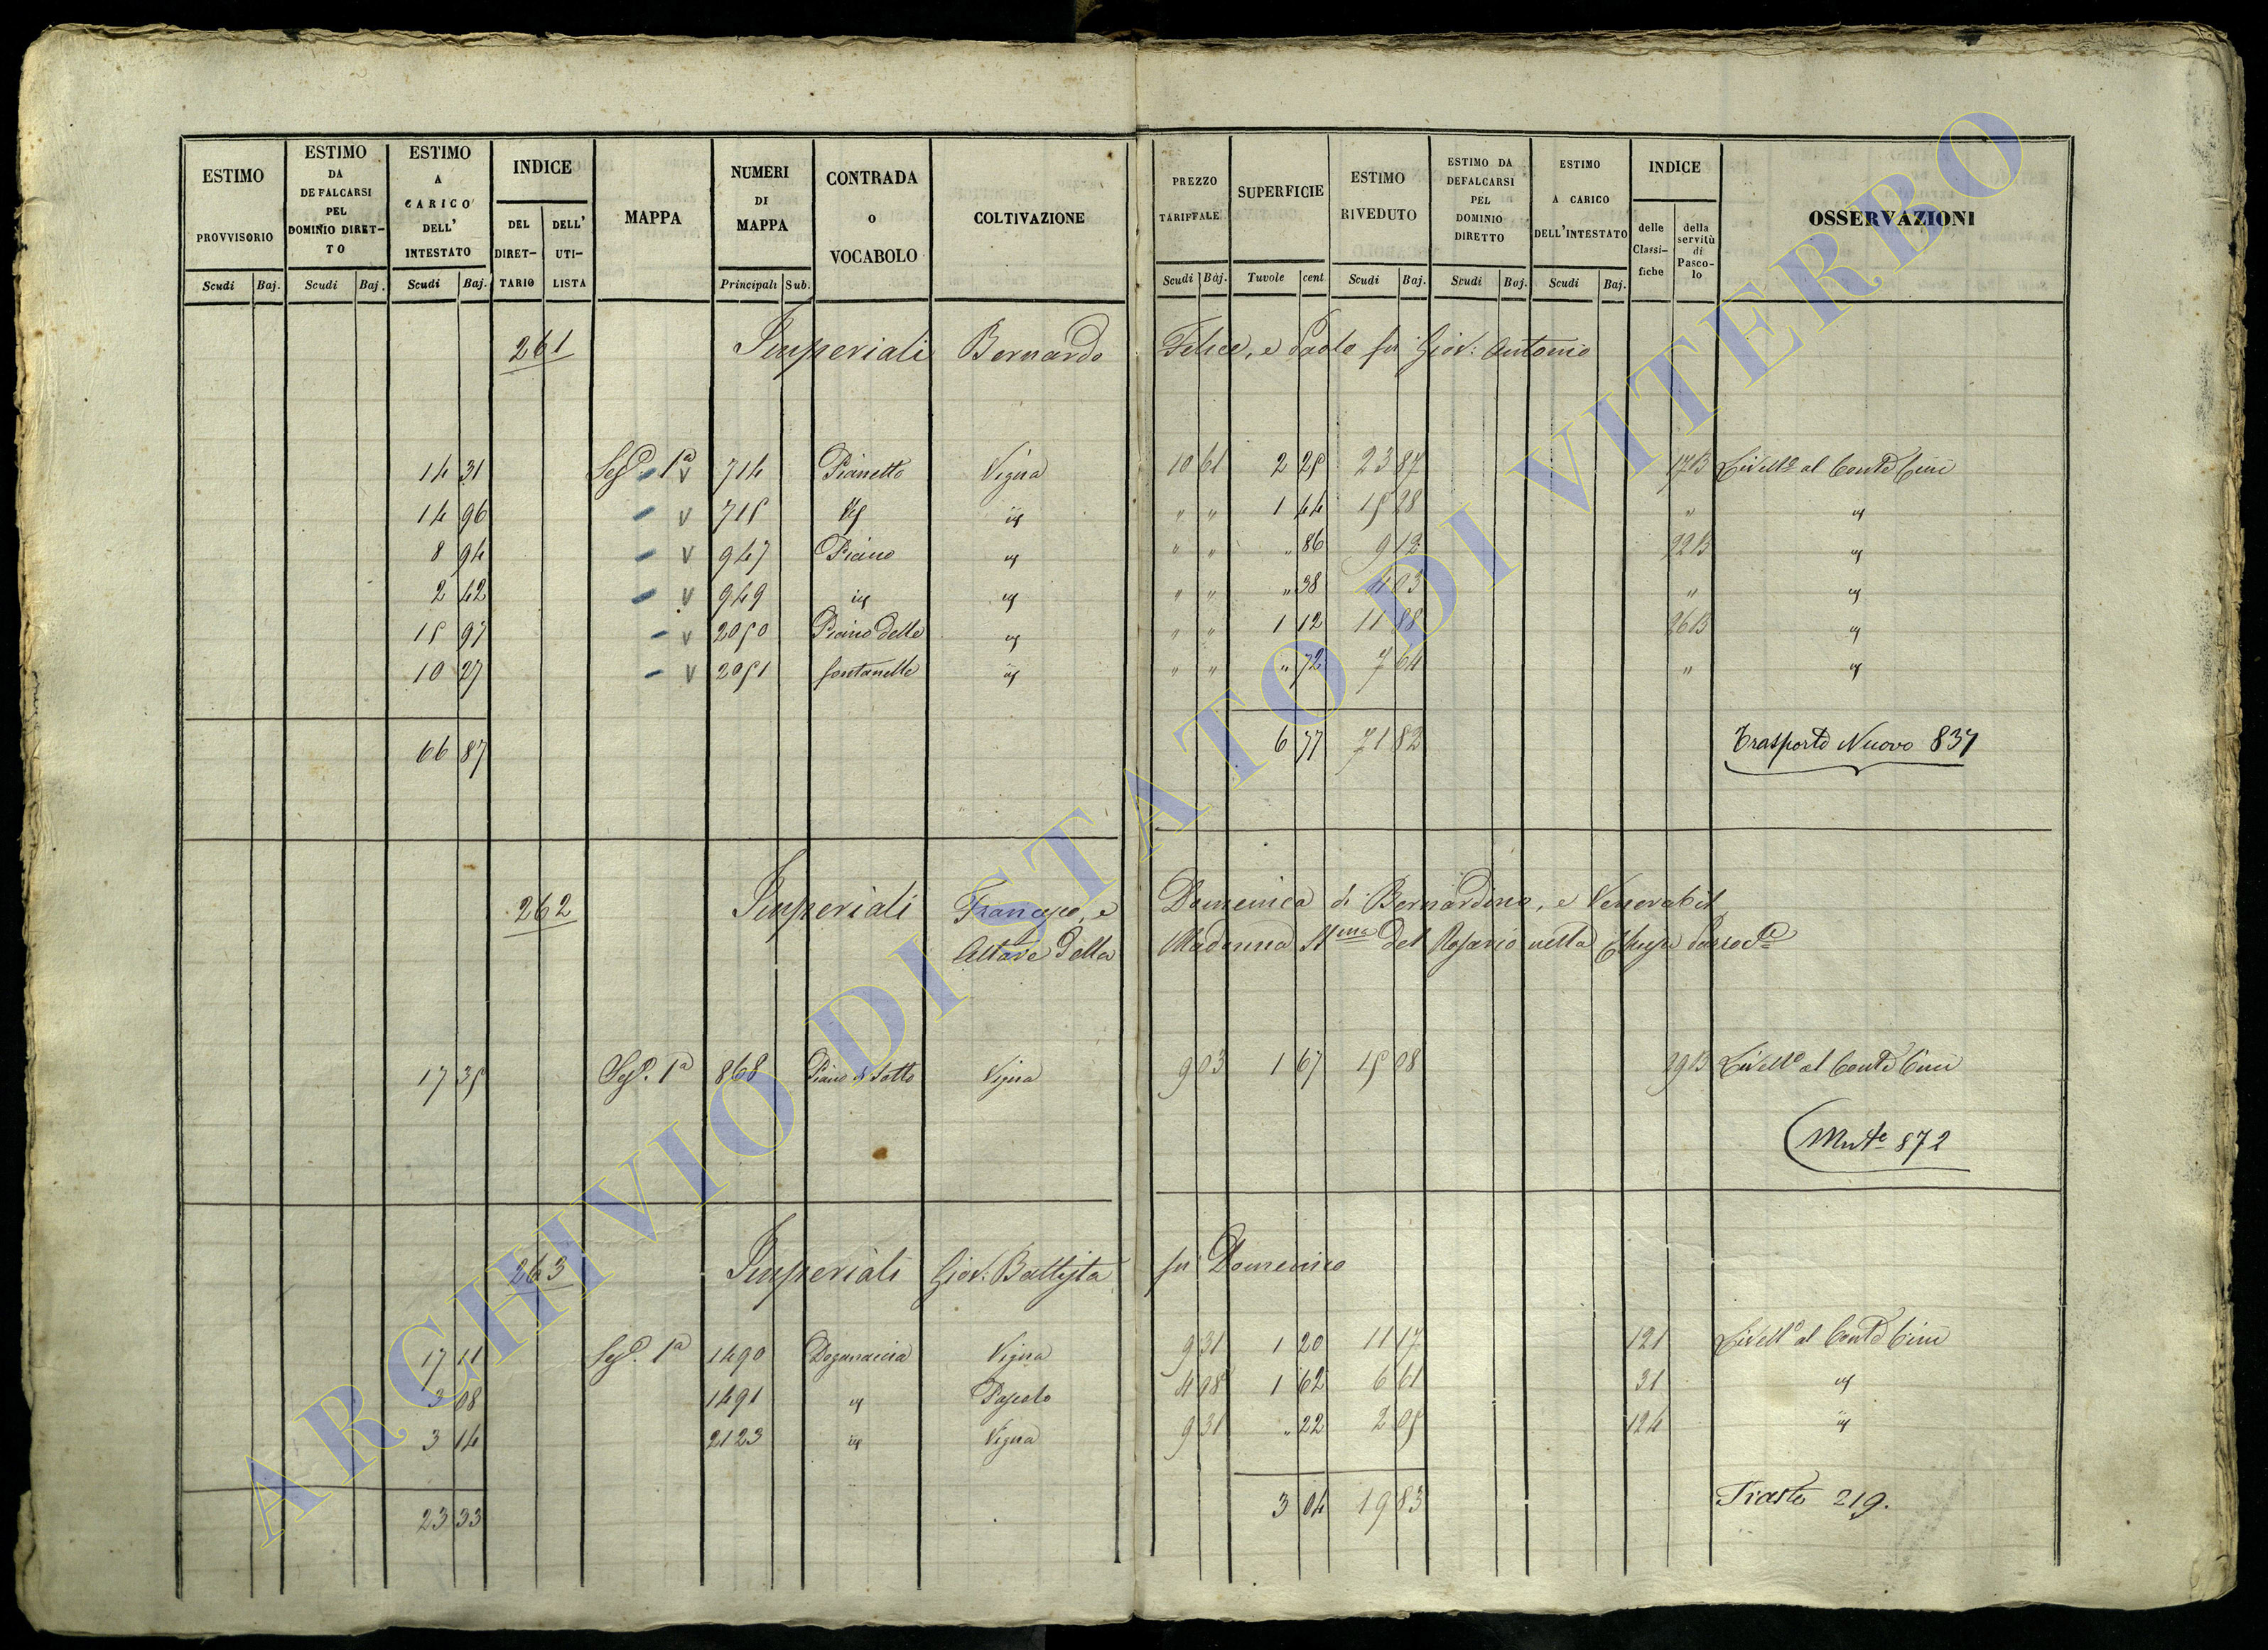 ESTIMO PROVVISORIO
ESTIMO DA DEFALCARSI PEL DOMINIO DIRET-TO
ESTIMO A CARICO DELL' INTESTATO
INDICE
DEL DIRET-TARIO
DELL' UTI-LISTA
MAPPA
NUMERI DI MAPPA
CONTRADA o VOCABOLO
COLTIVAZIONE
PREZZO TARIFFALE
SUPERFICIE
ESTIMO RIVEDUTO
ESTIMO DA DEFALCARSI PEL DOMINIO DIRETTO
ESTIMO A CARICO DELL'INTESTATO
INDICE
delle Classi-fiche
della servitù di Pasco-lo
OSSERVAZIONI
Scudi Baj. Scudi Baj. Scudi Baj. Principali Sub. Scudi Baj. Tavole cent Scudi Baj. Scudi Baj. Scudi Baj.
261 Imperiali Bernardo Felice, e Paolo fu Giov: Antonio
14 31 Sez. 1a V 714 Pianetto Vigna 10 61 2 25 23 87 17B Livell.o al Conte Cini
14 96 V 715 id id " " 1 44 15 28 " id
8 94 V 947 Piano id " " " 86 9 12 22B id
2 42 V 949 id id " " " 38 4 03 " id
15 97 V 2050 Piano delle id " " 1 12 11 88 26B id
10 27 V 2051 fontanelle id " " " 72 7 64 " id
66 87 6 77 71 82 Trasporto Nuovo 837
262 Imperiali Francesco, e Domenica di Bernardino, e Venerabil
Altare della Madonna SSma Del Rosario nella Chiesa Parrocle
17 35 Sez. 1a 868 Piano di Sotto Vigna 9 03 1 67 15 08 29B Livell.o al Conte Cini
872
263 Imperiali Giov: Battista fu Domenico
17 11 Sez. 1a 1490 Doganaccia Vigna 9 31 1 20 11 17 121 Livell.o al Conte Cini
3 08 1491 id Pascolo 4 08 1 62 6 61 31 id
3 14 2123 id Vigna 9 31 " 22 2 05 124 id
23 33 3 04 19 83 Trasto 219.
ARCHVIO DI STATO DI VITERBO